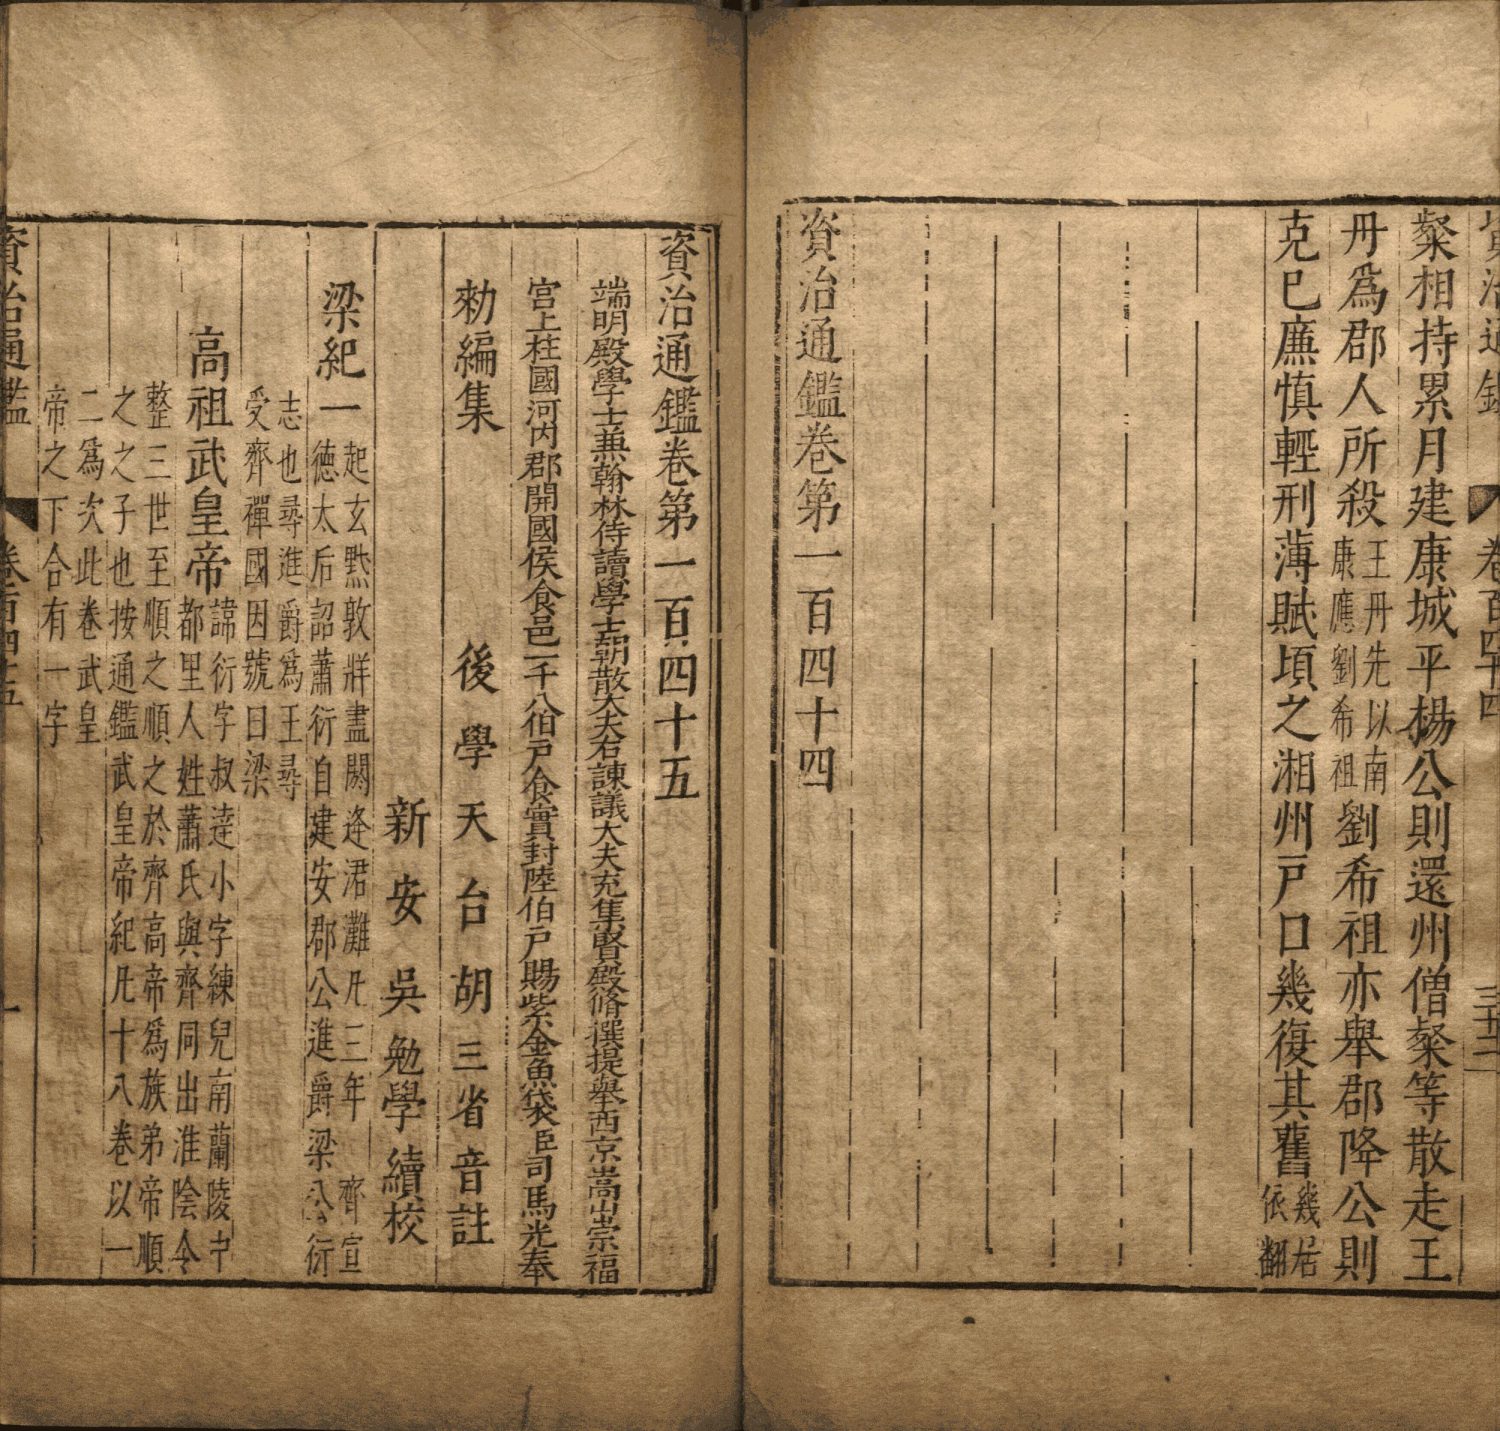 資治通鑑 卷百四十四 三十二
粲相持累月建康城平楊公則還州僧粲等散走王
丹爲郡人所殺王丹先以南康應劉希祖劉希祖亦舉郡降公則
克已廉慎輕刑薄賦頃之湘州戸口幾復其舊幾居依翻
資治通鑑卷第一百四十四
資治通鑑卷第一百四十五
端明殿學士兼翰林侍讀學士朝散大夫右諫議大夫充集賢殿脩撰提舉西京嵩山崇福
宮上柱國河内郡開國侯食邑一千八伯戸食實封陸伯戸賜紫金魚袋臣司馬光奉
勑編集 後學天台胡三省音註
新安吳勉學續校
梁紀一起玄黓敦牂盡閼逢涒灘凡三年 齊宣德太后詔蕭衍自建安郡公進爵梁公衍
志也尋進爵爲王尋受齊禪國因號曰梁
高祖武皇帝諱衍字叔達小字練兒南蘭陵中都里人姓蕭氏與齊同出淮陰令
整三世至順之順之於齊高帝爲族弟帝順之之子也按通鑑武皇帝紀凡十八卷以一
二爲次此卷武皇帝之下合有一字
資治通鑑 卷百四十五 一